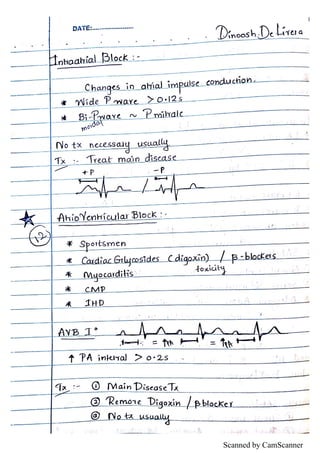 1
DATE:
Dinoosh De Livera
Intraatrial Block :-
Changes in atrial impulse conduction.
* Wide P wave > 0.12s
* Bi-P wave ~ P mitrale
modal
No tx necessary usually
Tx :- Treat main disease
+P -P
AtrioVentricular Block :-
12
* Sportsmen
* Cardiac Glycosides (digoxin) / β-blockers
toxicity
* Myocarditis
* CMP
* IHD
AVB I°
↑ PA interval > 0.2s
Tx :- ① Main Disease Tx
② Remove Digoxin / β blocker
③ No tx usually
Scanned by CamScanner